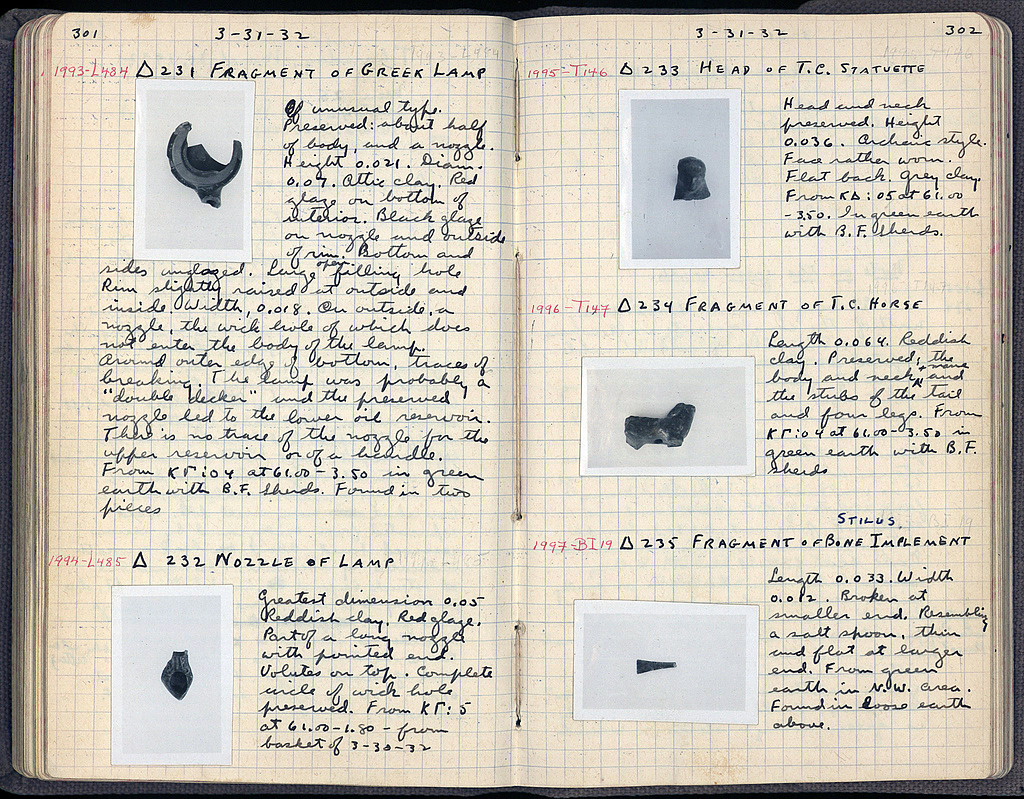 301
3-31-32
1993-L484 Δ 231 FRAGMENT OF GREEK LAMP
Of unusual type.
Preserved: about half
of body, and a nozzle.
Height 0.021. Diam.
0.07. Attic clay. Red
glaze on bottom of
interior. Black glaze
on nozzle and outside
of rim. Bottom and
sides unglazed. Large open filling hole
Rim slightly raised at outside and
inside. Width, 0.018. On outside, a
nozzle, the wick hole of which does
not enter the body of the lamp.
Around outer edge of bottom, traces of
breaking. The lamp was probably a
"double decker" and the preserved
nozzle led to the lower oil reservoir.
There is no trace of the nozzle for the
upper reservoir or of a handle.
From KΓ:04 at 61.00-3.50 in green
earth with B.F. sherds. Found in two
pieces
1994-L485 Δ 232 NOZZLE OF LAMP
Greatest dimension 0.05
Reddish clay. Red glaze.
Part of a long nozzle
with pointed end.
Volutes on top. Complete
circle of wick hole
preserved. From KΓ:5
at 61.00-1.80 - from
basket of 3-30-32
3-31-32
302
1995-T146 Δ 233 HEAD OF T.C. STATUETTE
Head and neck
preserved. Height
0.036. Archaic style.
Face rather worn.
Flat back. Grey clay.
From KΔ:05 at 61.00
-3.50. In green earth
with B.F. sherds.
1996-T147 Δ 234 FRAGMENT OF T.C. HORSE
Length 0.064. Reddish
clay. Preserved; the
body and neck, + mane and
the stubs of the tail
and four legs. From
KΓ:04 at 61.00-3.50 in
green earth with B.F.
sherds
STILUS
1997-BI19 Δ 235 FRAGMENT OF BONE IMPLEMENT
Length 0.033. Width
0.012. Broken at
smaller end. Resembling
a salt spoon, thin
and flat at larger
end. From green
earth in N.W. area.
Found in loose earth
above.